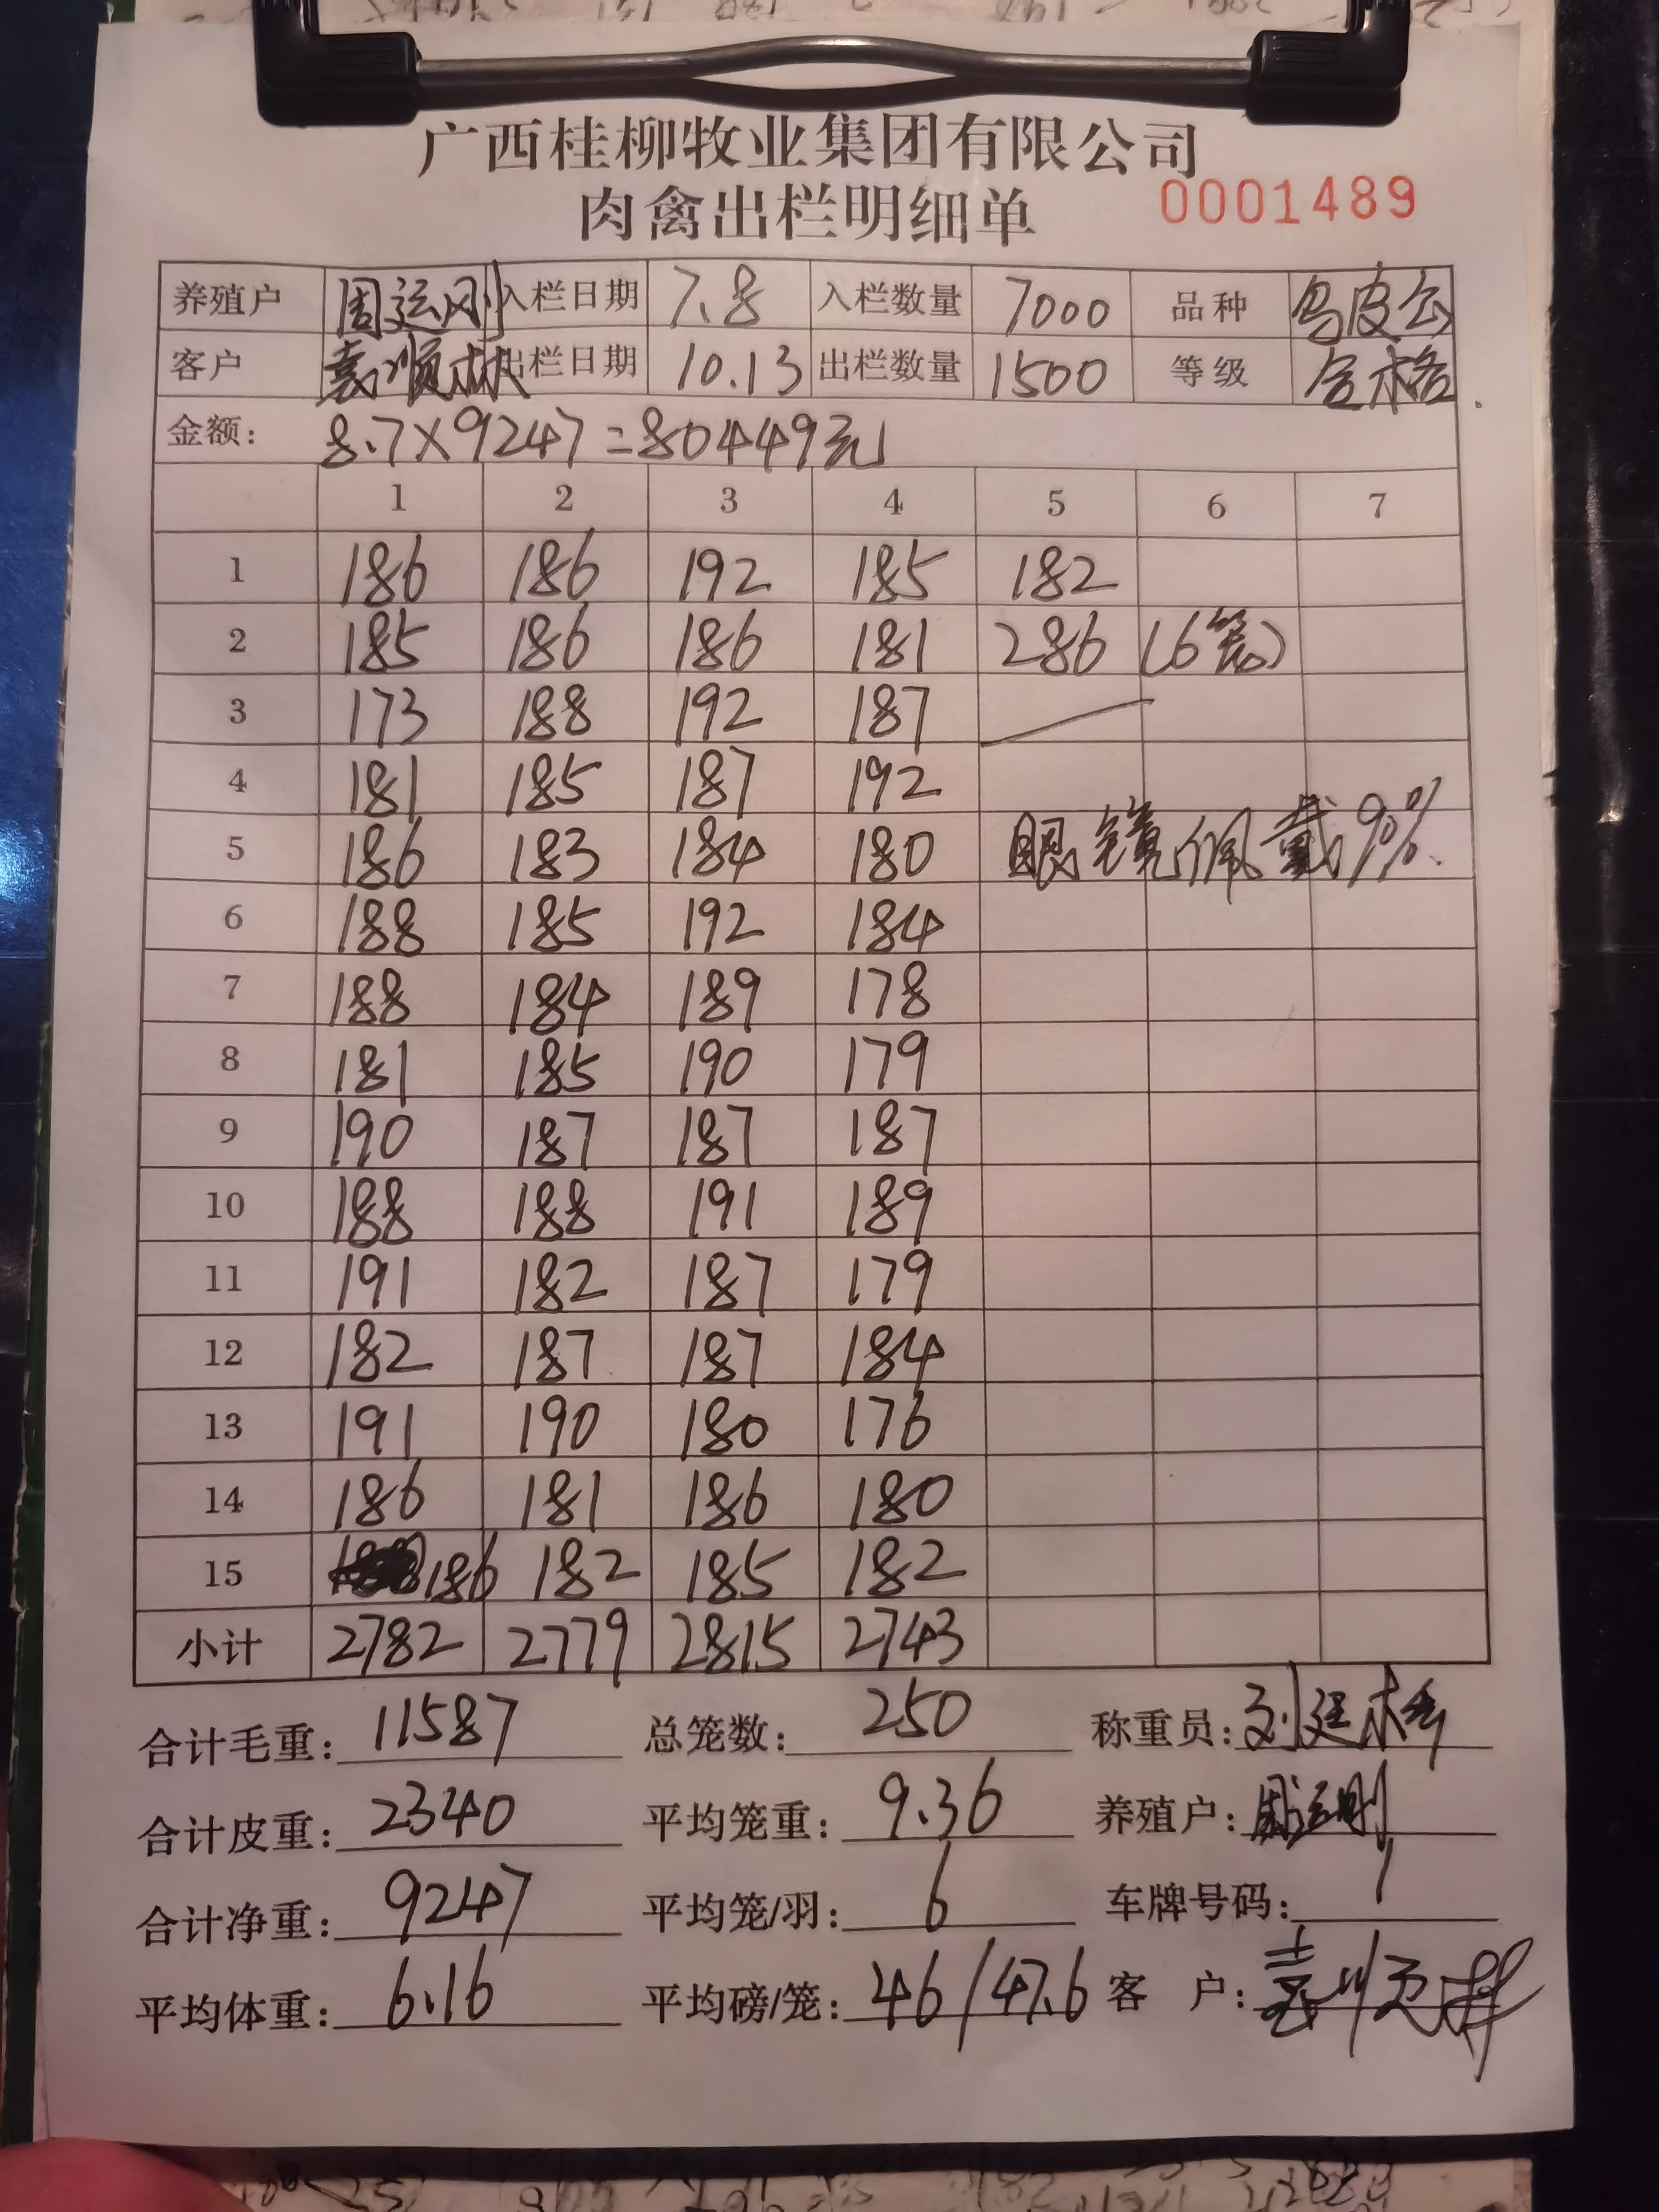 广西桂柳牧业集团有限公司
肉禽出栏明细单 0001489
养殖户 周运刚 入栏日期 7.8 入栏数量 7000 品种 乌皮公
客户 嘉顺林 出栏日期 10.13 出栏数量 1500 等级 合格
金额: 8.7×9247=80449元
1 2 3 4 5 6 7
1 186 186 192 185 182
2 185 186 186 181 286 (6笼)
3 173 188 192 187
4 181 185 187 192
5 186 183 184 180 眼镜佩戴90%
6 188 185 192 184
7 188 184 189 178
8 181 185 190 179
9 190 187 187 187
10 188 188 191 189
11 191 182 187 179
12 182 187 187 184
13 191 190 180 176
14 186 181 186 180
15 186 182 185 182
小计 2782 2779 2815 2743
合计毛重: 11587 总笼数: 250 称重员:
合计皮重: 2340 平均笼重: 9.36 养殖户: 周运刚
合计净重: 9247 平均笼/羽: 6 车牌号码:
平均体重: 6.16 平均磅/笼: 46/47.6 客 户: 嘉顺林